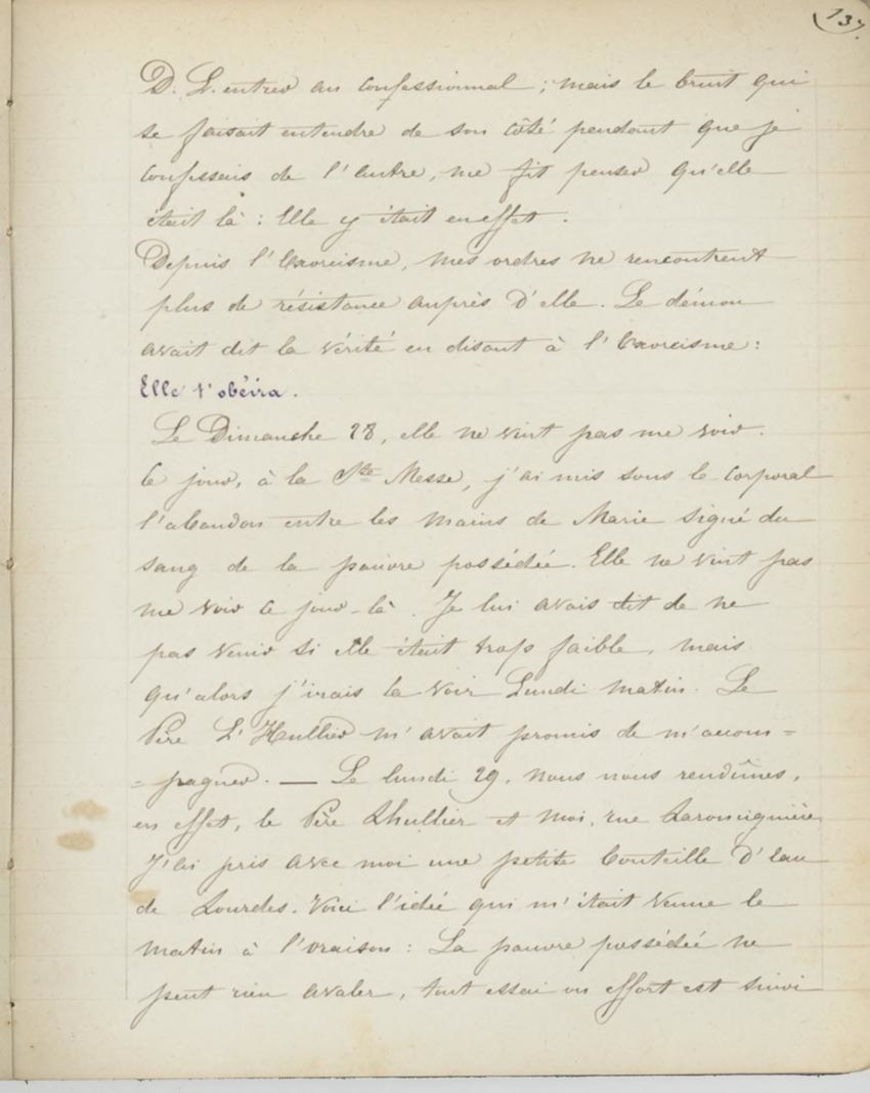 137.
D. L. entrer au confessionnal ; mais le bruit qui
se faisait entendre de son côté pendant que je
confessais de l'autre, me fit penser qu'elle
était là : Elle y était en effet.
Depuis l'Exorcisme, mes ordres ne rencontrent
plus de résistance auprès d'elle. Le démon
avait dit la vérité en disant à l'Exorcisme :
Elle t'obéira.
Le Dimanche 28, elle ne vint pas me voir.
Ce jour, à la Ste Messe, j'ai mis sous le corporal
l'abandon entre les mains de Marie signé du
sang de la pauvre possédée. Elle ne vint pas
me voir ce jour-là. Je lui avais dit de ne
pas venir si elle était trop faible, mais
qu'alors j'irais la voir Lundi matin. Le
Père L'Hullier m'avait promis de m'accom=
=pagner. — Le lundi 29, nous nous rendîmes,
en effet, le Père Lhullier et moi, rue Laromiguière
J'ai pris avec moi une petite bouteille d'eau
de Lourdes. Voici l'idée qui m'était venue le
matin à l'oraison : La pauvre possédée ne
peut rien avaler, tout essai ou effort est suivi